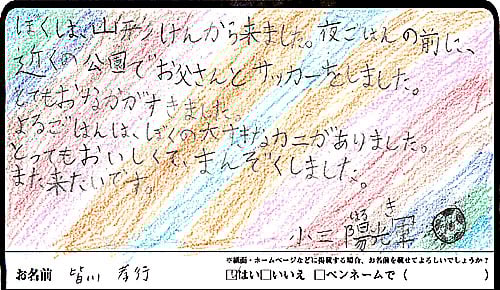 ぼくは、山形けんから来ました。夜ごはんの前に、
近くの公園でお父さんとサッカーをしました。
とてもおなかがすきました。
よるごはんは、ぼくの大すきなカニがありました。
とってもおいしくて、まんぞくしました。
また来たいです。
小三 陽光
※紙面・ホームページなどに掲載する場合、お名前を載せてよろしいでしょうか?
お名前 皆川 孝行 ☑はい □いいえ □ペンネームで ( )